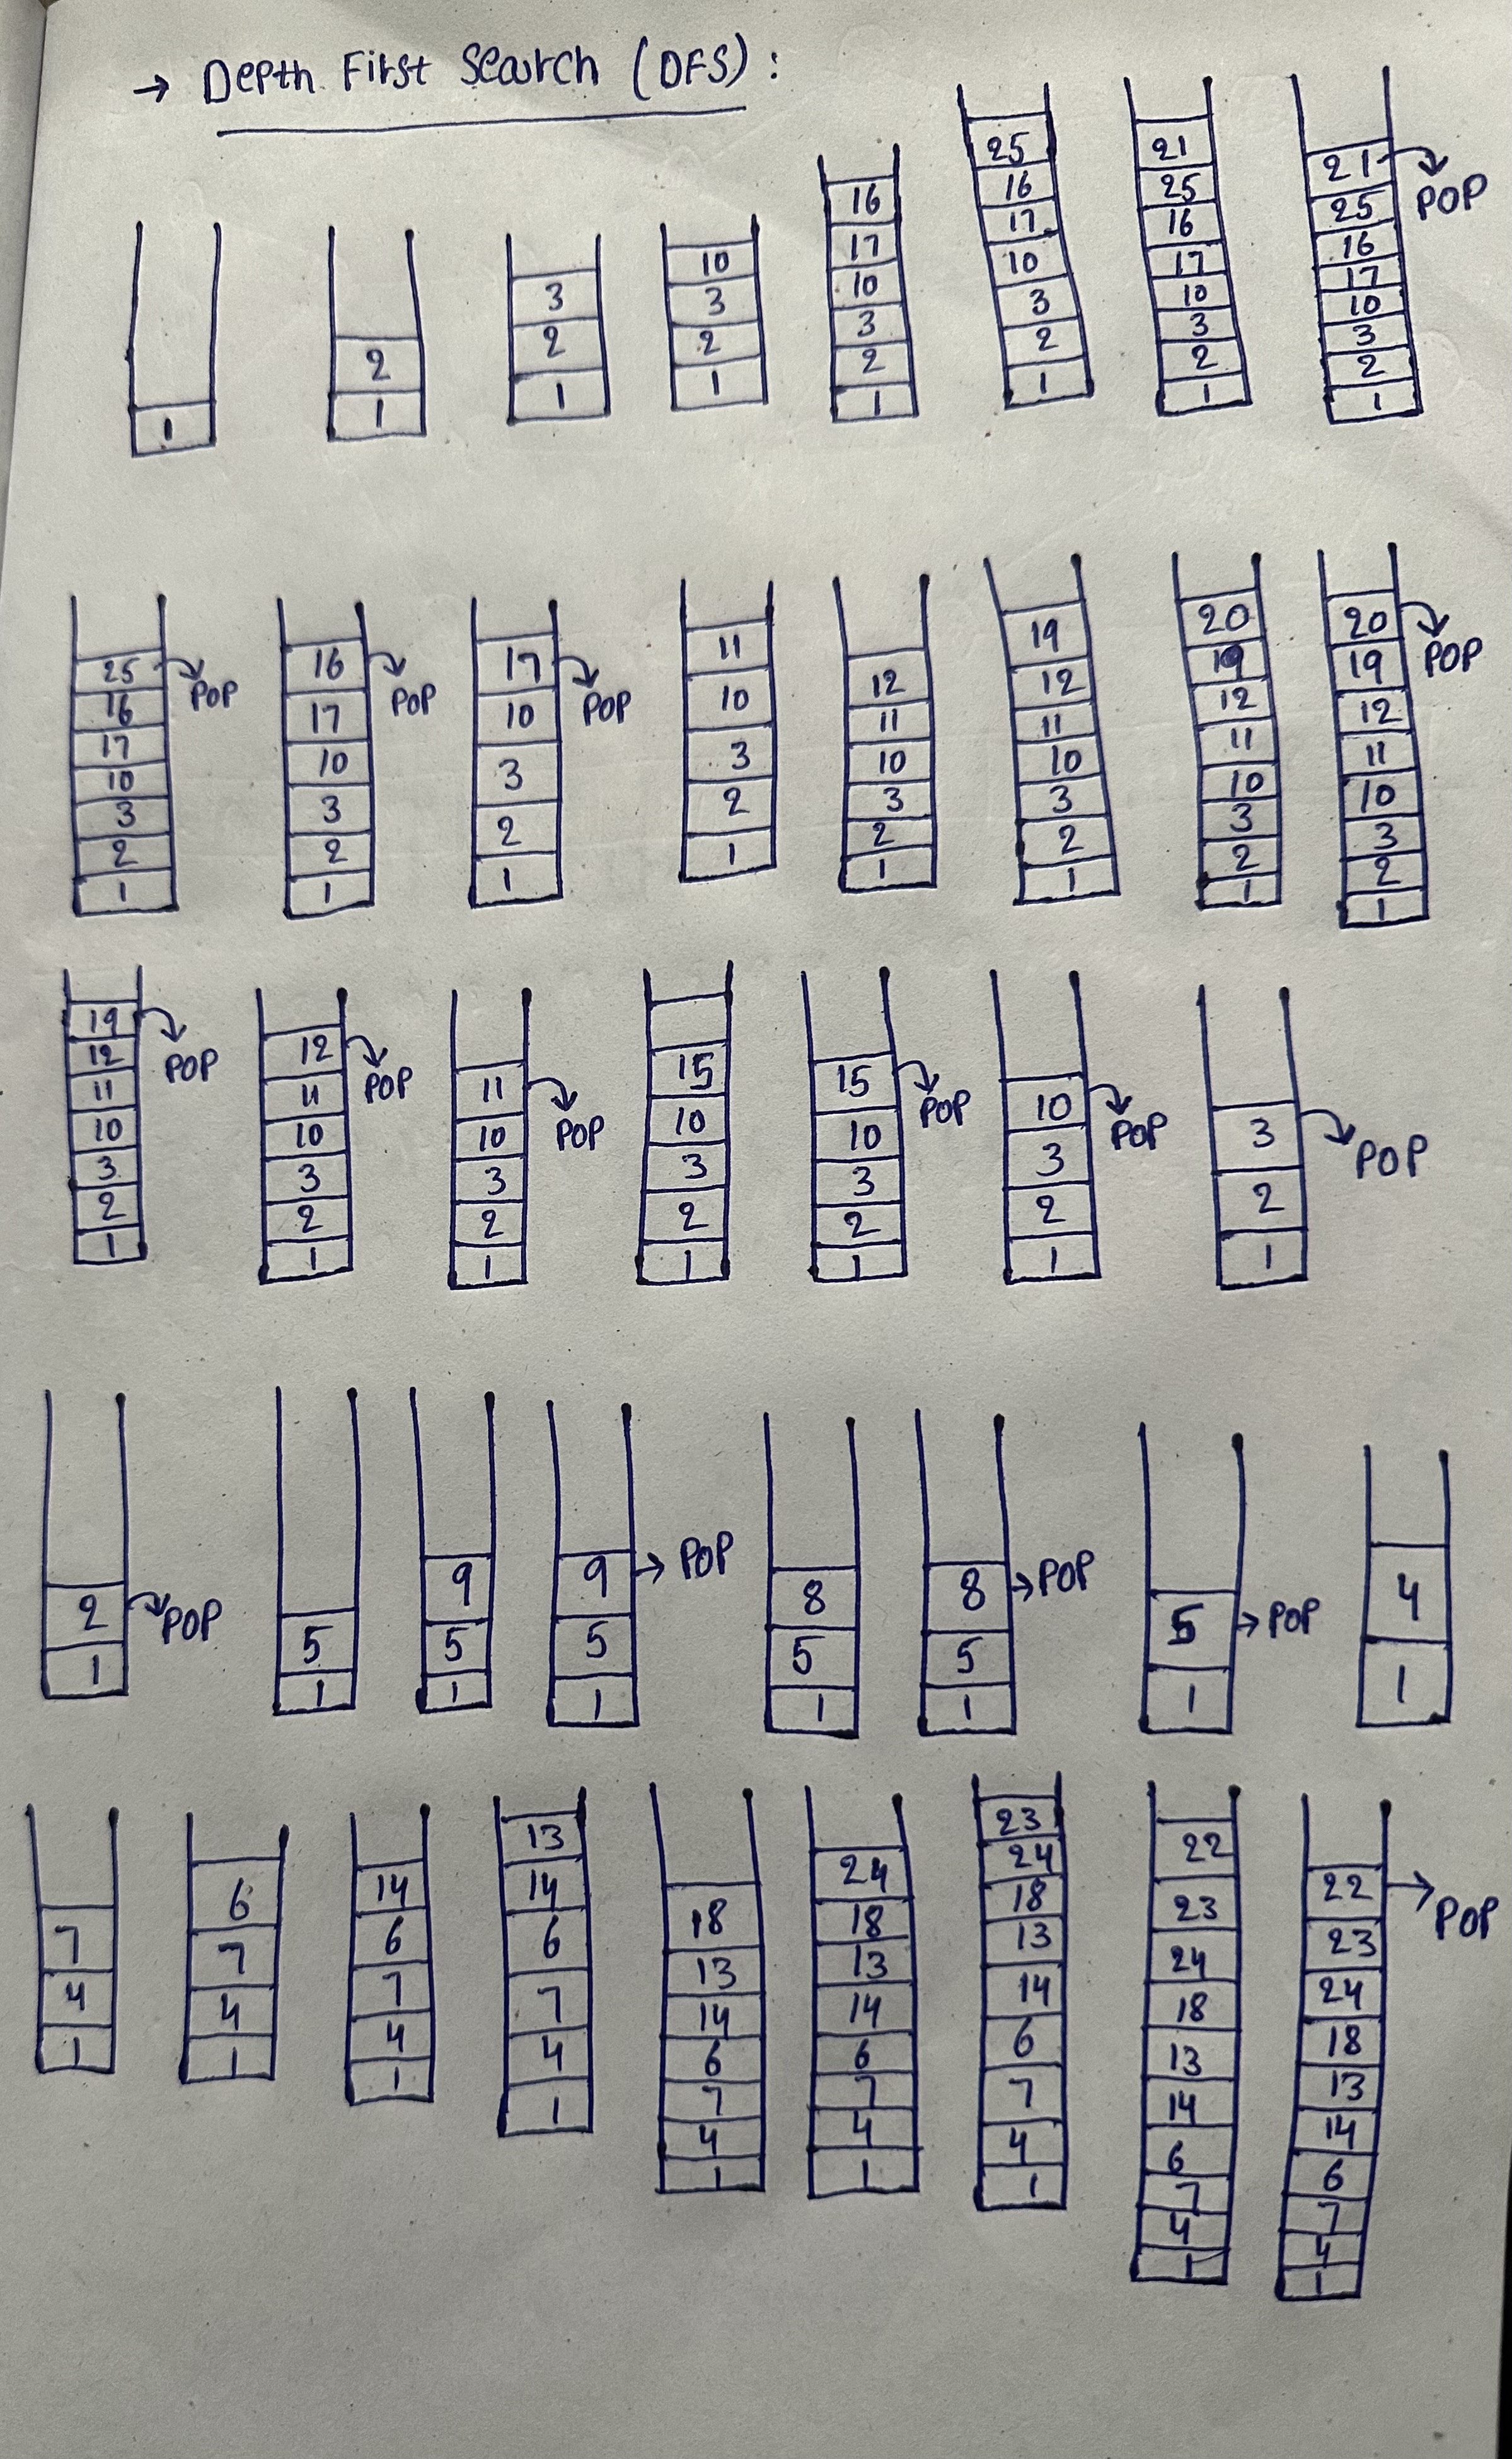 → Depth First Search (DFS) :
1
2 1
3 2 1
10 3 2 1
16 17 10 3 2 1
25 16 17 10 3 2 1
21 25 16 17 10 3 2 1
21 POP 25 16 17 10 3 2 1
25 POP 16 17 10 3 2 1
16 POP 17 10 3 2 1
17 POP 10 3 2 1
11 10 3 2 1
12 11 10 3 2 1
19 12 11 10 3 2 1
20 19 12 11 10 3 2 1
20 POP 19 12 11 10 3 2 1
19 POP 12 11 10 3 2 1
12 POP 11 10 3 2 1
11 POP 10 3 2 1
15 10 3 2 1
15 POP 10 3 2 1
10 POP 3 2 1
3 POP 2 1
2 POP 1
5 1
9 5 1
9 → POP 5 1
8 5 1
8 → POP 5 1
5 → POP 1
4 1
7 4 1
6 7 4 1
14 6 7 4 1
13 14 6 7 4 1
18 13 14 6 7 4 1
24 18 13 14 6 7 4 1
23 24 18 13 14 6 7 4 1
22 23 24 18 13 14 6 7 4 1
22 → POP 23 24 18 13 14 6 7 4 1